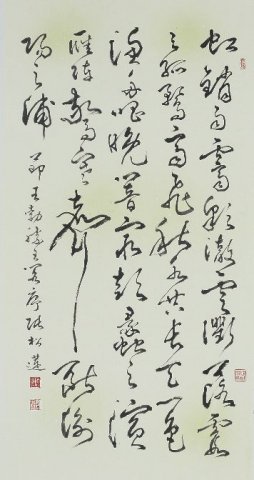 虹銷雨霽彩徹雲衢落霞
与孤鶩齊飛秋水共長天一色
漁舟唱晚響窮彭蠡之濱
雁陣驚寒聲斷衡
陽之浦 節王勃滕王閣序 松蓮